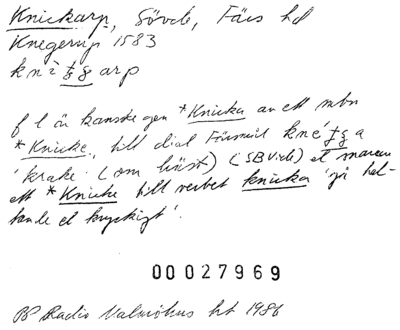 Knickarp, Sövde, Färs hd
Knegerup 1583
arp
f l är kanske gen *Knicka av ett mbn
*Knicke, till dial Färsmål
'krake' (om häst) (SBVide) el
ett *Knicke till verbet knicka 'gå hal-
tande el knyckigt'.
00027969
PP Radio Malmöhus ht 1986